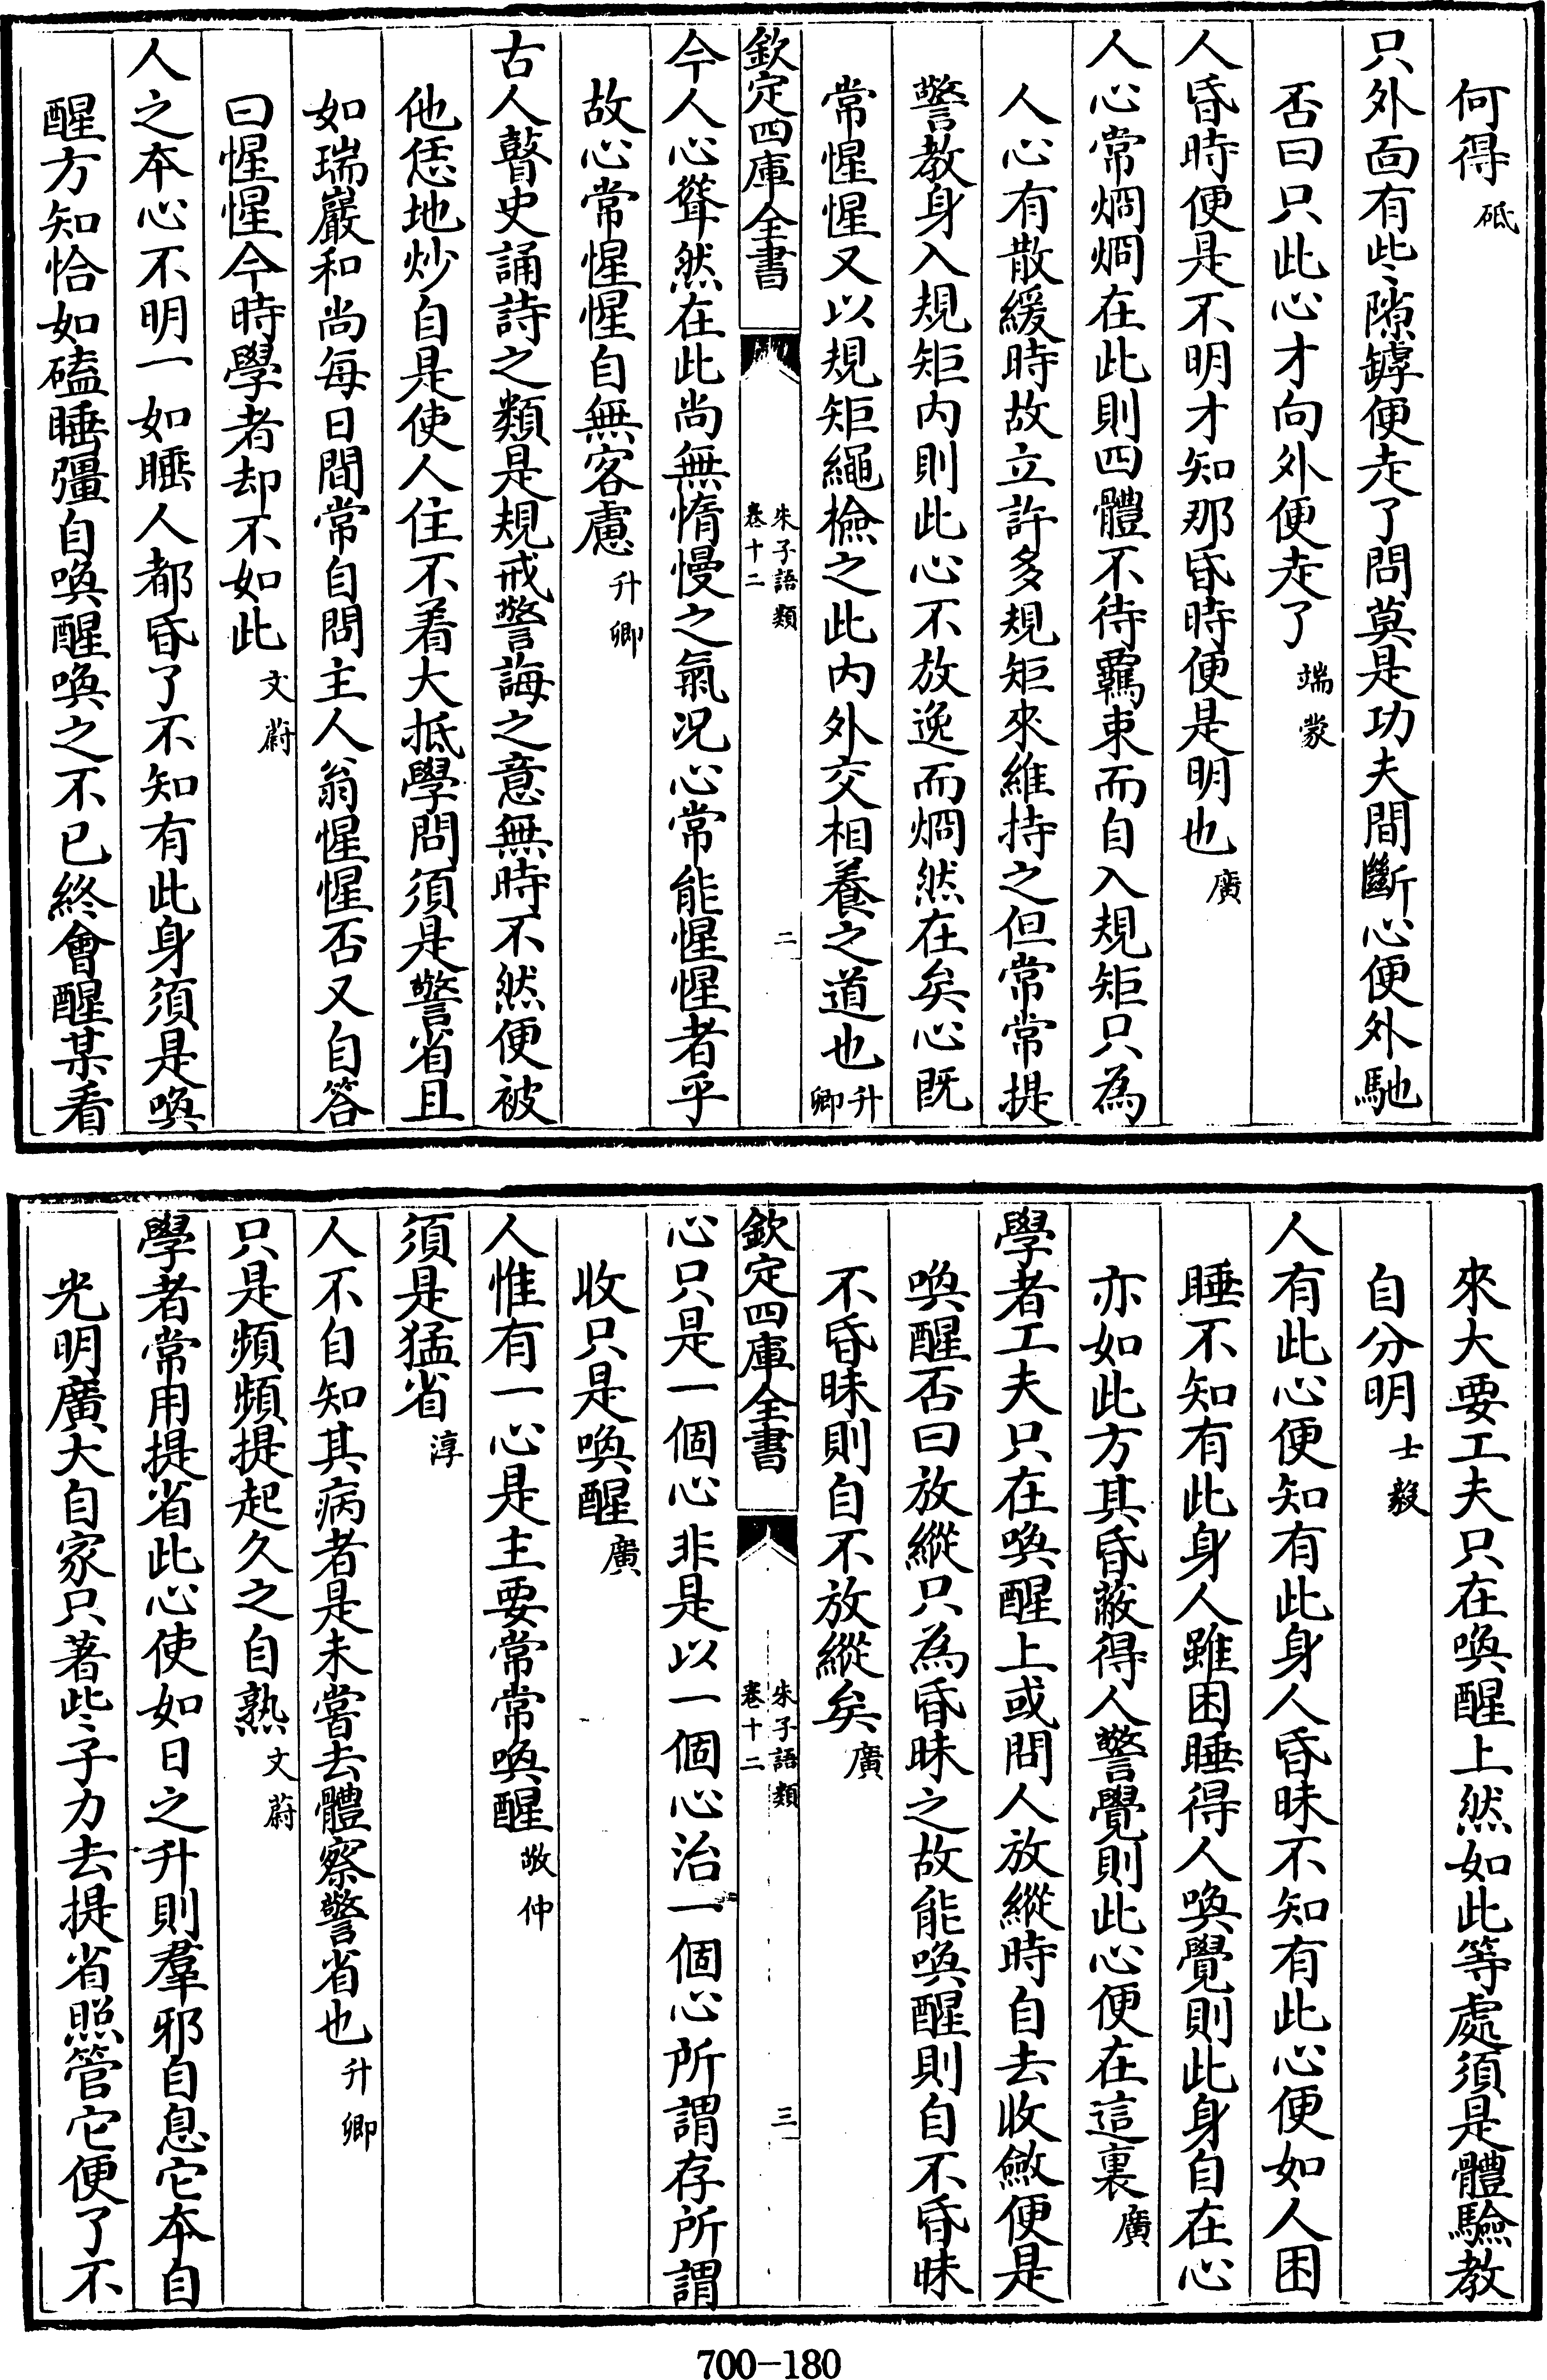 何得砥
只外面有些隙罅便走了問莫是功夫間斷心便外馳
否曰只此心才向外便走了端蒙
人昏時便是不明才知那昏時便是明也廣
人心常烱烱在此則四體不待羈束而自入規矩只為
人心有散緩時故立許多規矩來維持之但常常提
警教身入規矩内則此心不放逸而烱然在矣心既
常惺惺又以規矩繩檢之此内外交相養之道也升卿
欽定四庫全書
朱子語類
卷十二
二
今人心聳然在此尚無惰慢之氣况心常能惺惺者乎
故心常惺惺自無客慮升卿
古人瞽史誦詩之類是規戒警誨之意無時不然便被
他恁地炒自是使人住不着大抵學問須是警省且
如瑞巖和尚每日間常自問主人翁惺惺否又自答
曰惺惺今時學者却不如此文蔚
人之本心不明一如睡人都昏了不知有此身須是喚
醒方知恰如磕睡彊自喚醒喚之不已終會醒某看
來大要工夫只在喚醒上然如此等處須是體驗教
自分明士毅
人有此心便知有此身人昏昧不知有此心便如人困
睡不知有此身人雖困睡得人喚覺則此身自在心
亦如此方其昏蔽得人警覺則此心便在這裏廣
學者工夫只在喚醒上或問人放縱時自去收斂便是
喚醒否曰放縱只為昏昧之故能喚醒則自不昏昧
不昏昧則自不放縱矣廣
欽定四庫全書
朱子語類
卷十二
三
心只是一個心非是以一個心治一個心所謂存所謂
收只是喚醒廣
人惟有一心是主要常常喚醒敬仲
須是猛省淳
人不自知其病者是未嘗去體察警省也升卿
只是頻頻提起久之自熟文蔚
學者常用提省此心使如日之升則羣邪自息它本自
光明廣大自家只著些子力去提省照管它便了不
700-180